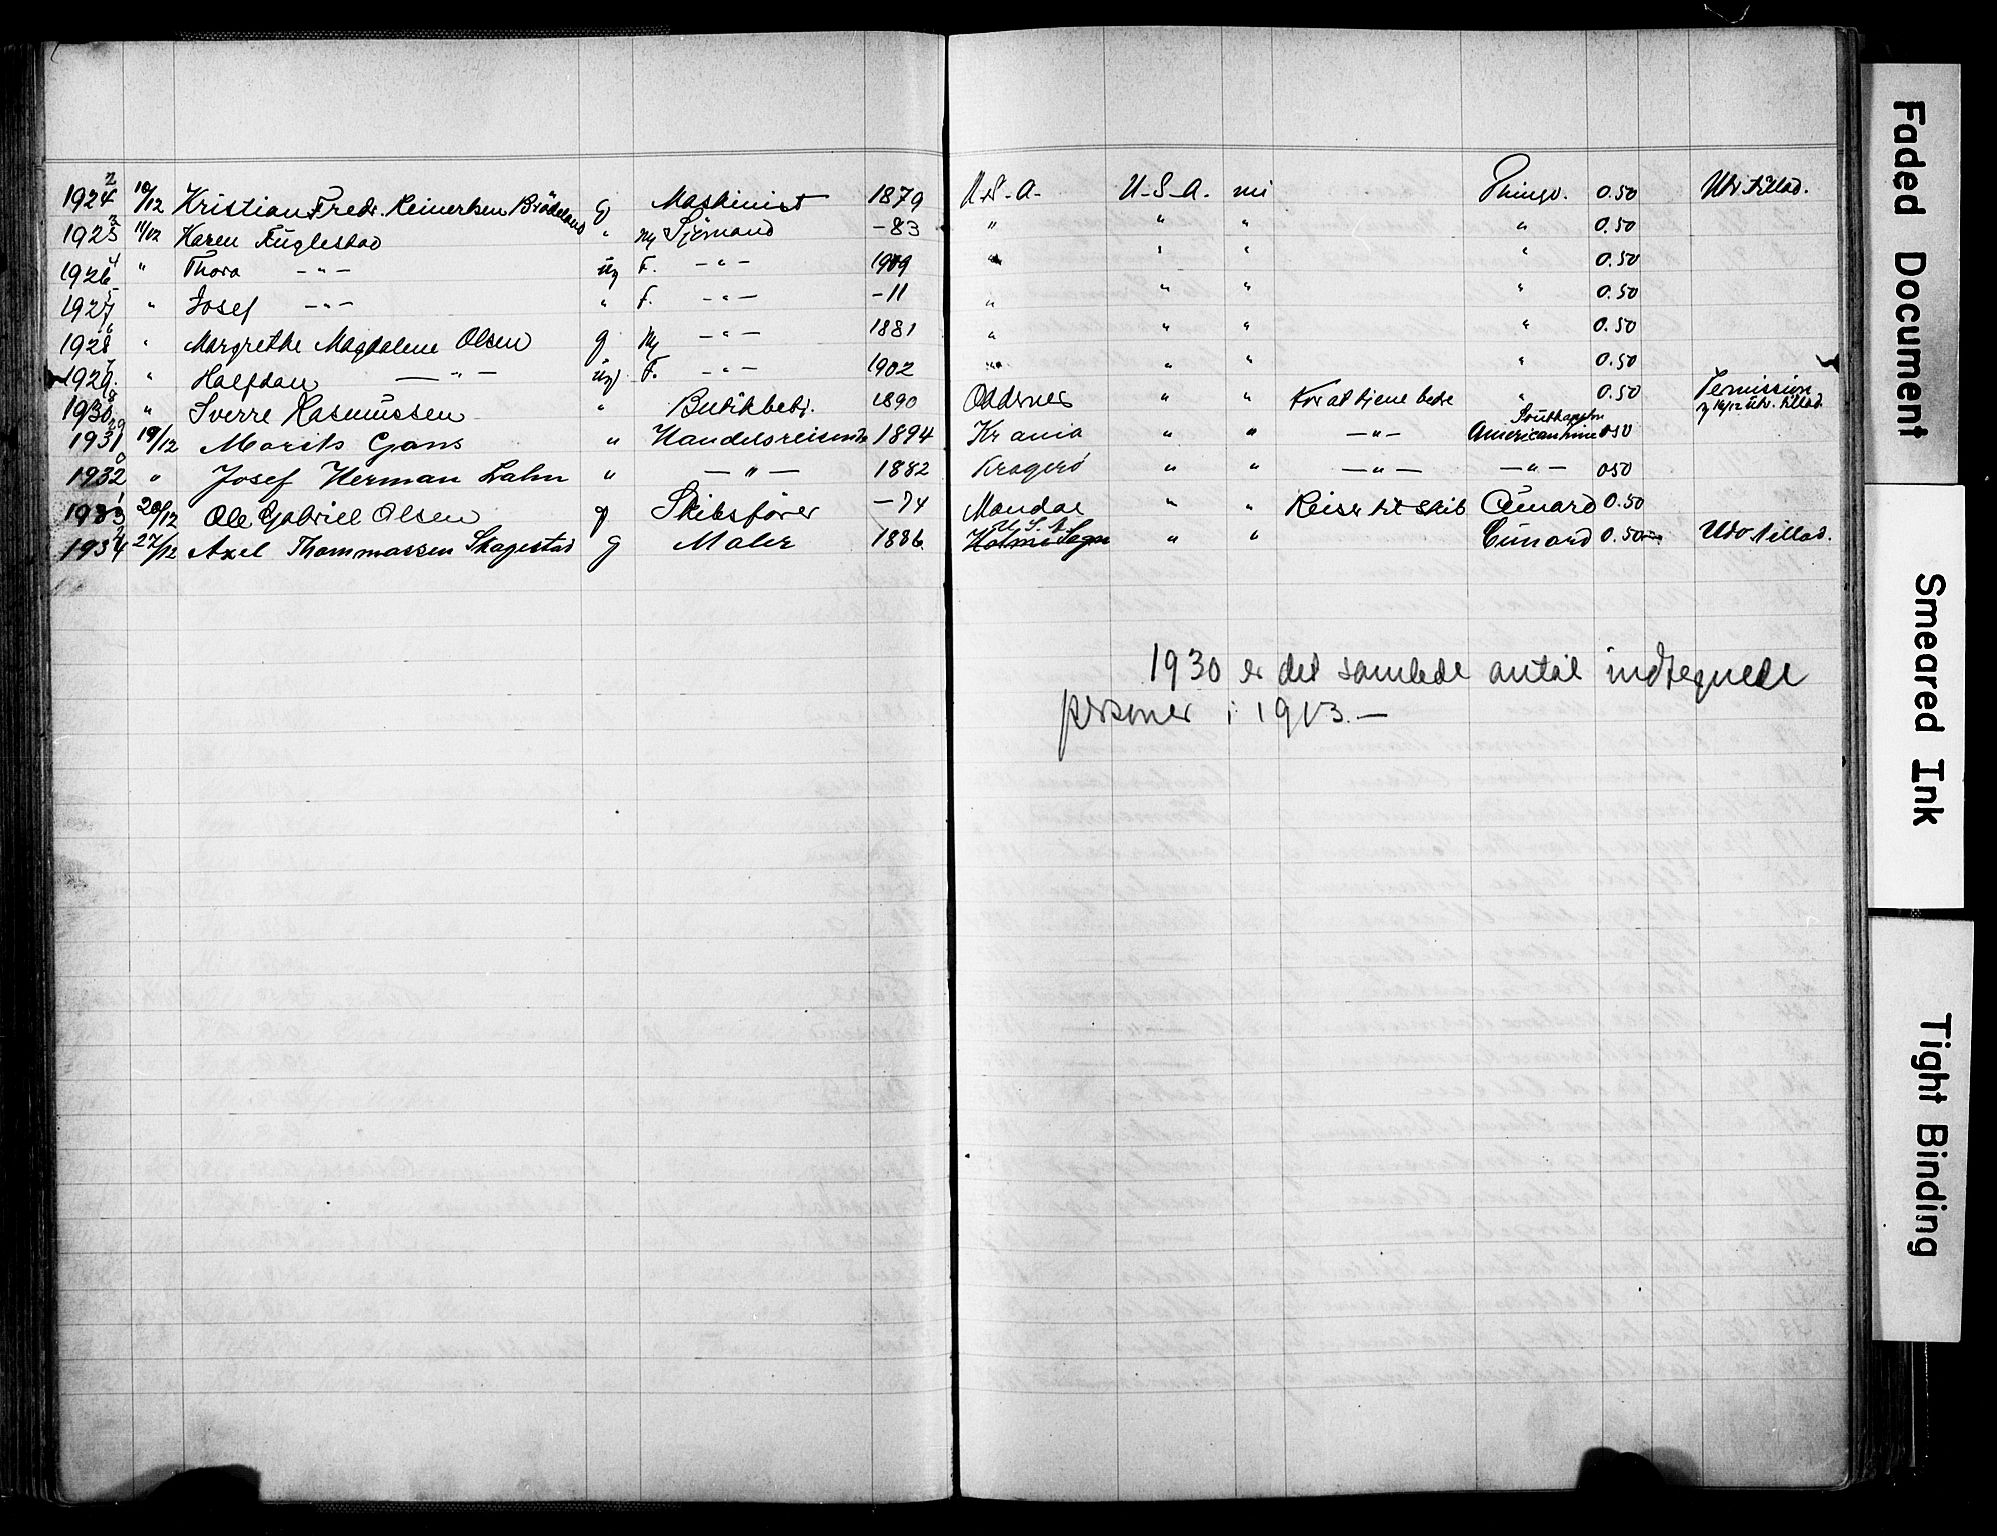 1924 2 10/12 Kristian Fredr. Reinertsen Brådland g Maskinist 1879 U.S.A. U.S.A. nei Thingv. 0.50 Udv. tillad.
1925 3 11/12 Karen Fuglestad " Ny Sjømand -83 " " " " 0.50
1926 4 " Thora -"- ug F. -"- 1909 " " " " 0.50
1927 5 " Josef -"- " F. -"- -11 " " " " 0.50
1928 6 " Margrethe Magdalene Olsen g Ny -"- 1881 " " " " 0.50
1929 7 " Halfdan -"- ug F. -"- 1902 " " " " 0.50
1930 8 " Sverre Rasmussen " Butikbetj. 1890 Oddernes " " For at tjene bedre " 0.50 Permission 16/12 Udv. tillad.
1931 29 19/12 Morits Gans " Handelsreisende 1894 Kr ania " " -"- Southampton American line 050
1932 0 " Josef Herman Lahn " -"- 1882 Kragerø " " -"- -"- 050
1933 1 20/12 Ole Gabriel Olsen g Skibsfører -74 Mandal " " Reiser til skib Cunard 0.50
1934 2 27/12 Axel Thommassen Skagestad g Maler 1886 U.S.A. Holme Sogn " " Cunard 0.50 Udv. tillad.
1930 er det samlede antal indtegnede
personer i 1913.—
Faded Document
Smeared Ink
Tight Binding